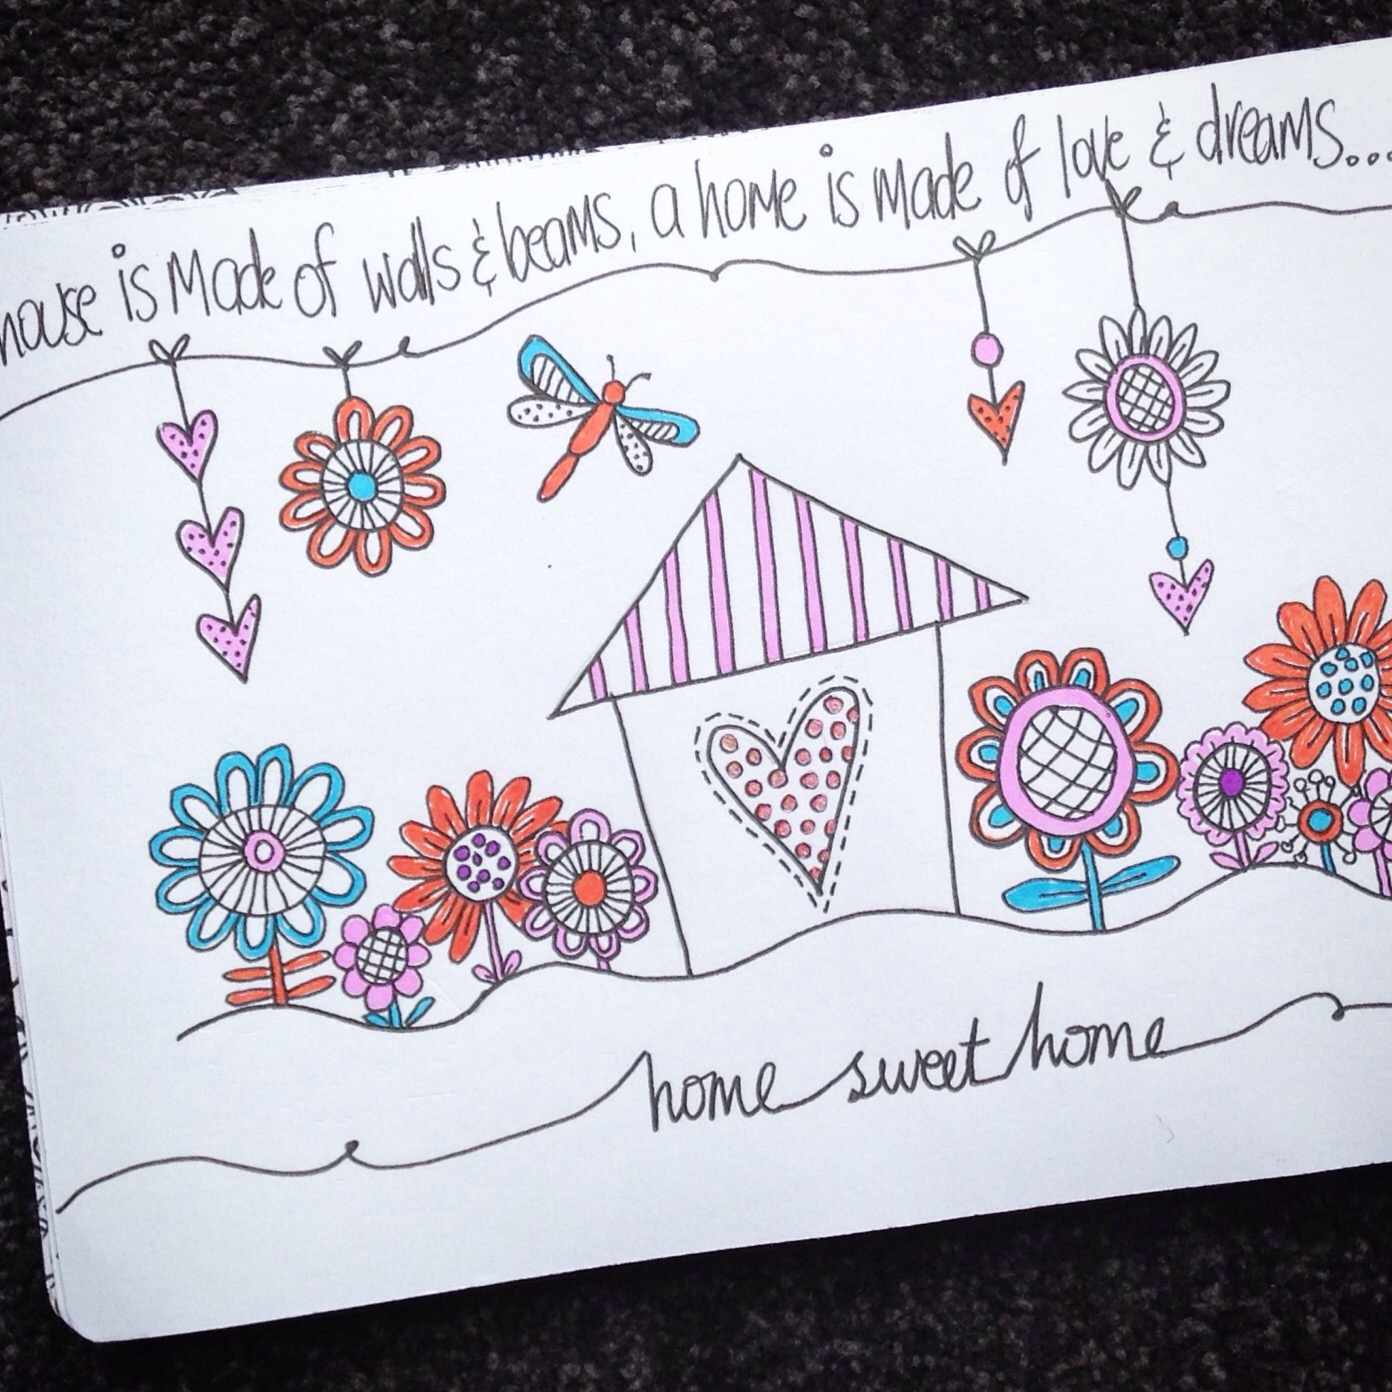 house is made of walls & beams, a home is made of love & dreams....
home sweet home